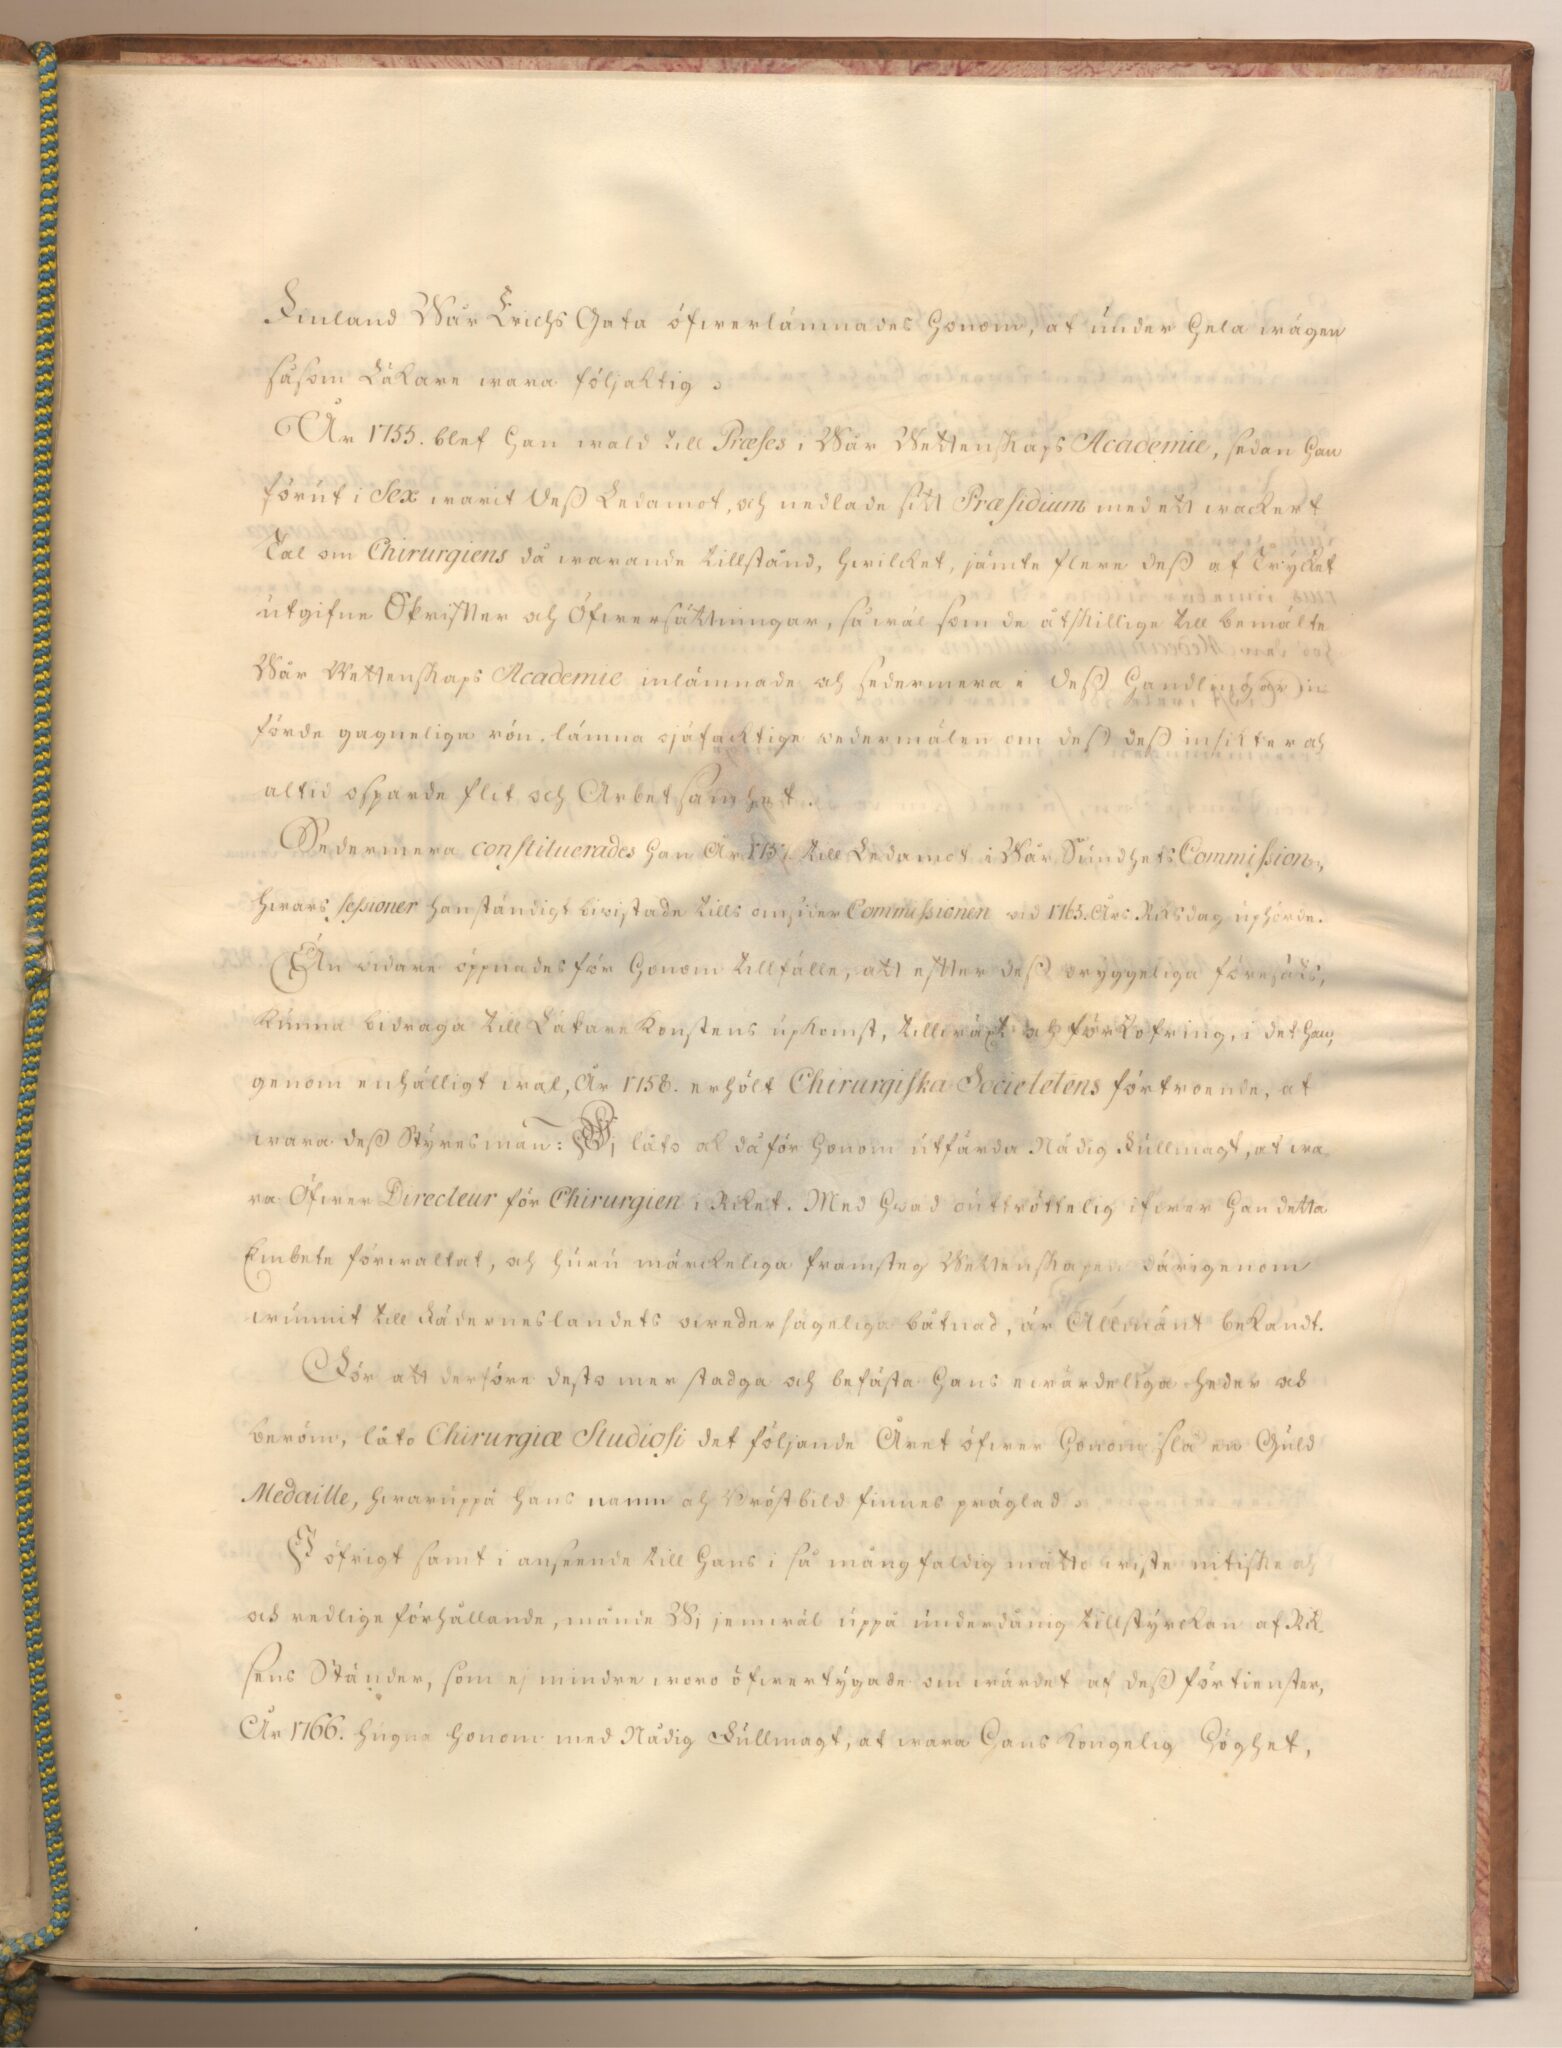 Finland Wår Erichs Gata öfwerlämnades Honom, at under hela wägen
såsom Läkare wara följaktig.
År 1755. blef Han wald till Præses i Wår Wettenskaps Academie, sedan Han
förut i Sex warit Deß Ledamot, och nedlade sitt Præsidium med ett wackert
Tal om Chirurgiens då warande tillstånd, hwilcket, jämte flere deß af Trycket
utgifne Skrifter och Öfwersättningar, såwäl som de åtskillige till bemälte
Wår Wettenskaps Academie inlämnade och sedermera i Deß Handlingar in
förde gagneliga rön, lämna ojäfacktige wedermälen om deß deß insikter och
altid osparde flit och Arbetsamhet.
Sedermera constituerades Han År 1757. till Ledamot i Wår Sundhets Commission,
hwars sessioner han ständigt biwistade tills omsider Commissionen vid 1765. Års Riksdag uphörde.
Än vidare öppnades för Honom tillfälle, att efter deß oryggeliga föresats,
kunna bidraga till Läkare Konstens upkomst, tillwäxt och förkofring, i det Han,
genom enhälligt wal, År 1758. erhölt Chirurgiska Societetens förtroende, at
wara deß Styresman: Wi låto ock då för Honom utfärda Nådig Fullmagt, at wa
ra Öfwer Directeur för Chirurgien i Riket. Med hwad outtröttelig ifwer Han detta
Embete förwaltat, och huru märckeliga framsteg Wettenskapen därigenom
wunnit till Fäderneslandets owedersägeliga båtnad, är Allmänt bekandt.
För att derföre desto mer stadga och befästa Hans ewärdeliga heder och
beröm, låto Chirurgiæ Studiosi det följande Året öfwer Honom slå en Guld
Medaille, hwaruppå hans namn och Bröstbild finnes präglad.
I öfrigt samt i anseende till Hans i så mångfaldig måtto wiste nitiske och
och redlige förhållande, månde Wi jemwäl uppå underdånig tillstyrckan af Rik
sens Ständer, som ej mindre woro öfwertygade om wärdet af deß förtienster,
År 1766. hugna honom med Nådig Fullmagt, at wara Hans Kongelig Höghet,